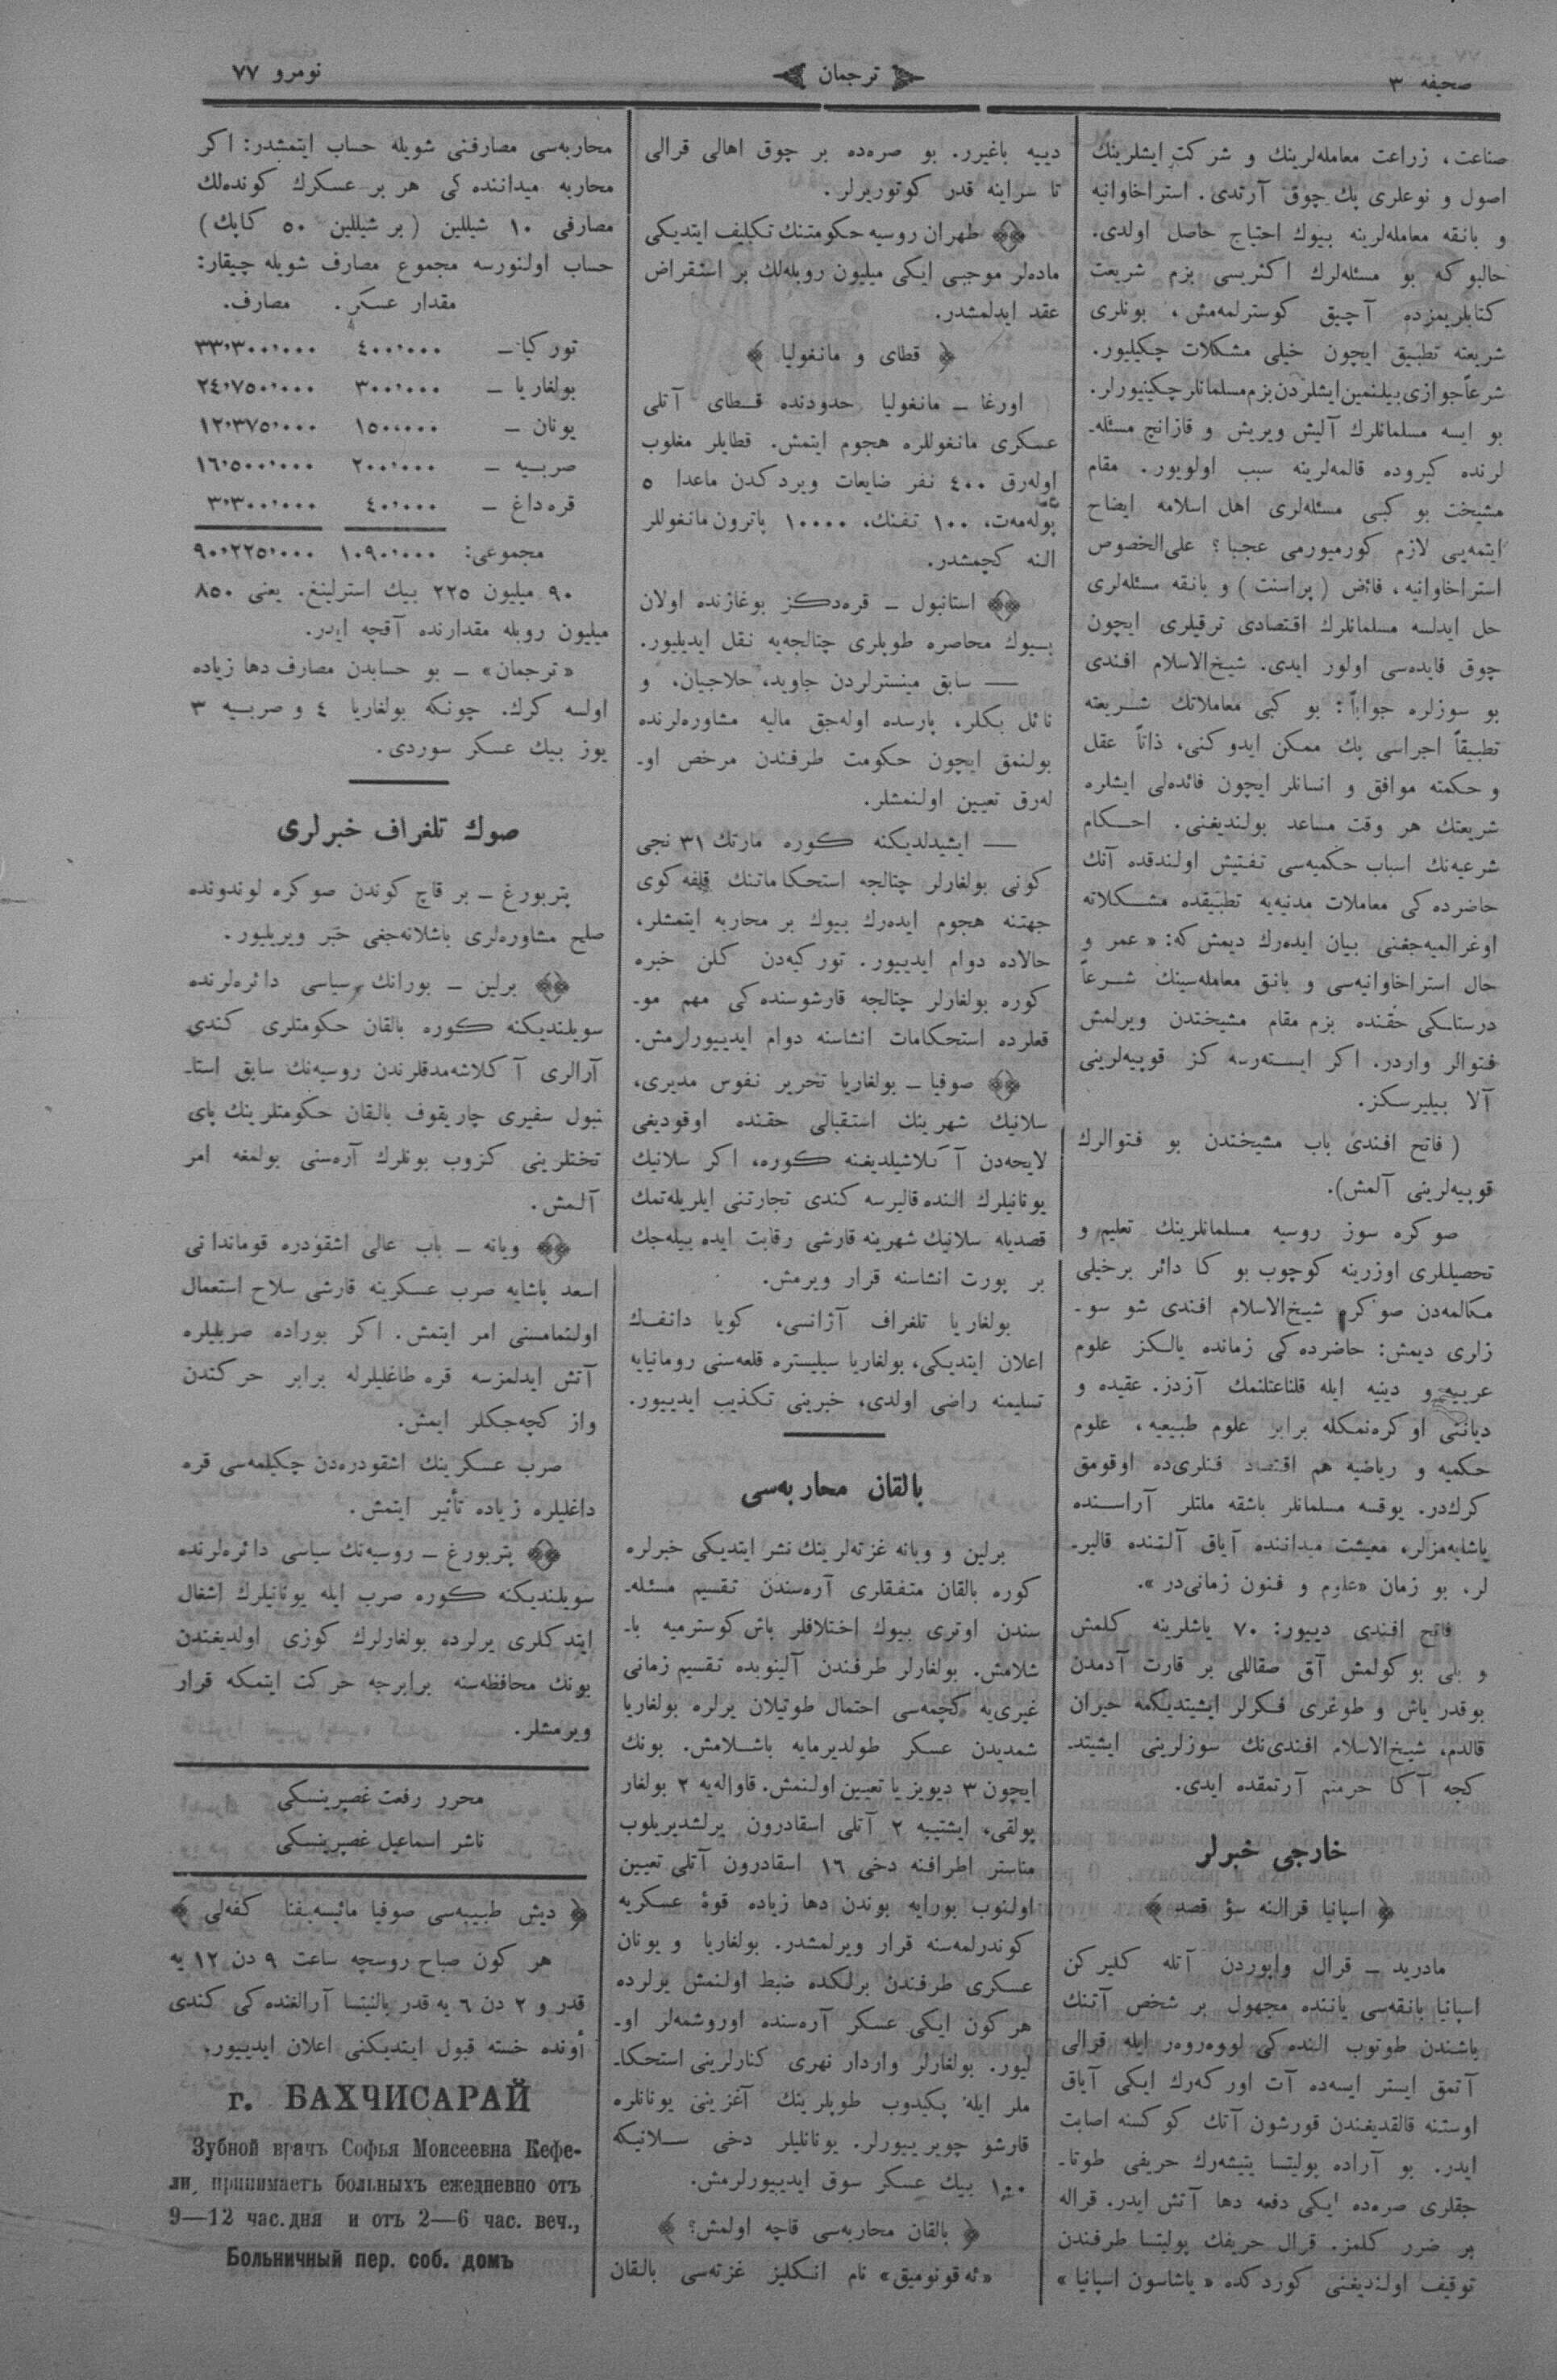 صحیفه ٣
ترجمان
نومرو ٧٧
صناعت، زراعت معامله‌لرینك و شركت ایشلرینك
اصول و نوعلری پك چوق آرتدی. استراخاوانیه
و بانقه معامله‌لرینه بیوك احتیاج حاصل اولدی.
حالبوكه بو مسئله‌لرك اكثریسی بزم شریعت
كتابلریمزده آچیق كوسترلمه‌مش، بونلری
شریعته تطبیق ایچون خیلی مشكلات چكیلیور.
شرعاً جوازی بیلنمین ایشلردن بزم مسلمانلر چكینیورلر.
بو ایسه مسلمانلرك آلیش ویریش و قازانج مسئله‌ـ
لرنده كیروده قالمه‌لرینه سبب اولویور. مقام
مشیخت بو كبی مسئله‌لری اهل اسلامه ایضاح
ایتمه‌یی لازم كورمیورمی عجبا؟ علی‌الخصوص
استراخاوانیه، فائض (پراسنت) و بانقه مسئله‌لری
حل ایدلسه مسلمانلرك اقتصادی ترقیلری ایچون
چوق فایده‌سی اولور ایدی. شیخ‌الاسلام افندی
بو سوزلره جواباً: بو كبی معاملاتك شریعته
تطبیقاً اجراسی پك ممكن ایدوكنی، ذاتاً عقل
و حكمته موافق و انسانلر ایچون فائده‌لی ایشلره
شریعتك هر وقت مساعد بولندیغنی. احكام
شرعیه‌نك اسباب حكمیه‌سی تفتیش اولندقده آنك
حاضرده‌كی معاملات مدنیه‌یه تطبیقده مشكلاته
اوغرالمیه‌جغنی بیان ایده‌رك دیمش‌كه: «عمر و
حال استراخاوانیه‌سی و بانق معامله‌سینك شرعاً
درستلكی حقنده بزم مقام مشیختدن ویرلمش
فتوالر واردر. اكر ایسته‌رسه كز قوپیه‌لرینی
آلا بیلیرسكز.
(فاتح افندی باب مشیختدن بو فتوالرك
قوپیه‌لرینی آلمش).
صوكره سوز روسیه مسلمانلرینك تعلیم و
تحصیللری اوزرینه كوچوب بو كا دائر برخیلی
مكالمه‌دن صوكره شیخ‌الاسلام افندی شو سو ـ
زلری دیمش: حاضرده‌كی زمانده یالكز علوم
عربیه و دینیه ایله قلناعتلنمك آزدز. عقیده و
دیانتی اوكره‌نمكله برابر علوم طبیعیه، علوم
حكمیه و ریاضیه هم اقتصاد فنلری‌ده اوقومق
كرك‌در. یوقسه مسلمانلر باشقه ملتلر آراسنده
یاشایه‌مزلر، معیشت میداننده آیاق آلتنده قالیر ـ
لر، بو زمان «علوم و فنون زمانی‌در».
فاتح افندی دییور: ٧٠ یاشلرینه كلمش
و بلی بوكولمش آق صقاللی بر قارت آدمدن
بوقدر یاش و طوغری فكرلر ایشیتدیكمه حیران
قالدم، شیخ‌الاسلام افندی‌نك سوزلرینی ایشیتد ـ
كجه آكا حرمتم آرتمقده ایدی.
خارجی خبرلر
﴿ اسپانیا قرالنه سؤ قصد ﴾
مادرید ـ قرال واپوردن آتله كلیركن
اسپانیا بانقه‌سی یاننده مجهول بر شخص آتنك
باشندن طوتوب النده‌كی لووه‌روه‌ر ایله قرالی
آتمق ایستر ایسه‌ده آت اوركه‌رك ایكی آیاق
اوستنه قالقدیغندن قورشون آتك كوكسنه اصابت
ایدر. بو آراده پولیتسا یتیشه‌رك حریفی طوتا ـ
جقلری صره‌ده ایكی دفعه دها آتش ایدر. قراله
بر ضرر كلمز. قرال حریفك پولیتسا طرفندن
توقیف اولندیغنی كوردكده «یاشاسون اسپانیا»
دییه باغیرر. بو صره‌ده بر چوق اهالی قرالی
تا سراینه قدر كوتوریرلر.
طهران روسیه حكومتنك تكلیف ایتدیكی
ماده‌لر موجبی ایكی میلیون روبله‌لك بر استقراض
عقد ایدلمشدر.
﴿ قطای و مانغولیا ﴾
اورغا ـ مانغولیا حدودنده قطای آتلی
عسكری مانغوللره هجوم ایتمش. قطایلر مغلوب
اوله‌رق ٤٠٠ نفر ضایعات ویردكدن ماعدا ٥
پوله‌مه‌ت، ١٠٠ تفنك، ١٠٠٠٠ پاترون مانغوللر
النه كچمشدر.
استانبول ـ قره‌دكز بوغازنده اولان
بیوك محاصره طوپلری چتالجه‌یه نقل ایدیلیور.
— سابق مینسترلردن جاوید، حلاجیان، و
نائل بكلر، پارسده اوله‌جق مالیه مشاوره‌لرنده
بولنمق ایچون حكومت طرفندن مرخص او ـ
له‌رق تعیین اولنمشلر.
— ایشیدلدیكنه كوره مارتك ٣١ نجی
كونی بولغارلر چتالجه استحكاماتنك قلفه كوی
جهتنه هجوم ایده‌رك بیوك بر محاربه ایتمشلر،
حالاده دوام ایدییور. توركیه‌دن كلن خبره
كوره بولغارلر چتالجه قارشوسنده‌كی مهم مو ـ
قعلرده استحكامات انشاسنه دوام ایدییورلرمش.
صوفیا ـ بولغاریا تحریر نفوس مدیری،
سلانیك شهرینك استقبالی حقنده اوقودیغی
لایحه‌دن آكلاشیلدیغنه كوره، اكر سلانیك
یونانیلرك النده قالیرسه كندی تجارتنی ایلریله‌تمك
قصدیله سلانیك شهرینه قارشی رقابت ایده بیله‌جك
بر پورت انشاسنه قرار ویرمش.
بولغاریا تلغراف آژانسی، كویا دانفك
اعلان ایتدیكی، بولغاریا سیلیستره قلعه‌سنی رومانیایه
تسلیمنه راضی اولدی، خبرینی تكذیب ایدییور.
بالقان محاربه‌سی
برلین و ویانه غزته‌لرینك نشر ایتدیكی خبرلره
كوره بالقان متفقلری آره‌سندن تقسیم مسئله ـ
سندن اوتری بیوك اختلافلر باش كوسترمیه با ـ
شلامش. بولغارلر طرفندن آلینوبده تقسیم زمانی
غیری‌یه كچمه‌سی احتمال طوتیلان یرلره بولغاریا
شمدیدن عسكر طولدیرمایه باشلامش. بونك
ایچون ٣ دیویزیا تعیین اولنمش. قاواله‌یه ٢ بولغار
پولقی، ایشتیبه ٢ آتلی اسقادرون یرلشدیریلوب
مناستر اطرافنه دخی ١٦ اسقادرون آتلی تعیین
اولنوب بورایه بوندن دها زیاده قوهٔ عسكریه
كوندرلمه‌سنه قرار ویرلمشدر. بولغاریا و یونان
عسكری طرفندن برلكده ضبط اولنمش یرلرده
هركون ایكی عسكر آره‌سنده اوروشمه‌لر او ـ
لیور. بولغارلر واردار نهری كنارلرینی استحكا ـ
ملر ایله پكیدوب طوپلرینك آغزینی یونانلره
قارشو چویرییورلر. یونانلیلر دخی سلانیكه
١٠٠ بیك عسكر سوق ایدییورلرمش.
﴿ بالقان محاربه‌سی قاچه اولمش؟ ﴾
«ئه‌قونومیق» نام انكلیز غزته‌سی بالقان
محاربه‌سی مصارفنی شویله حساب ایتمشدر: اكر
محاربه میداننده‌كی هر بر عسكرك كونده‌لك
مصارفی ١٠ شیللین (بر شیللین ٥٠ كاپك)
حساب اولنورسه مجموع مصارف شویله چیقار:
مقدار عسكر. مصارف.
توركیا ـ ٤٠٠،٠٠٠ ٣٣،٣٠٠،٠٠٠
بولغاریا ـ ٣٠٠،٠٠٠ ٢٤،٧٥٠،٠٠٠
یونان ـ ١٥٠،٠٠٠ ١٢،٣٧٥،٠٠٠
صربیه ـ ٢٠٠،٠٠٠ ١٦،٥٠٠،٠٠٠
قره‌داغ ـ ٤٠،٠٠٠ ٣،٣٠٠،٠٠٠
مجموعی: ١٠٩٠،٠٠٠ ٩٠،٢٢٥،٠٠٠
٩٠ میلیون ٢٢٥ بیك استرلینغ. یعنی ٨٥٠
میلیون روبله مقدارنده آقچه ایدر.
«ترجمان» ـ بو حسابدن مصارف دها زیاده
اولسه كرك. چونكه بولغاریا ٤ و صربیه ٣
یوز بیك عسكر سوردی.
صوك تلغراف خبرلری
پتربورغ ـ بر قاچ كوندن صوكره لوندونده
صلح مشاوره‌لری باشلانه‌جغی خبر ویریلیور.
برلین ـ بورانك سیاسی دائره‌لرنده
سویلندیكنه كوره بالقان حكومتلری كندی
آرالری آكلاشه‌مدقلرندن روسیه‌نك سابق استا ـ
نبول سفیری چاریقوف بالقان حكومتلرینك پای
تختلرینی كزوب بونلرك آره‌سنی بولمغه امر
آلمش.
ویانه ـ باب عالی اشقودره قوماندانی
اسعد پاشایه صرب عسكرینه قارشی سلاح استعمال
اولنمامسنی امر ایتمش. اكر بوراده صربلیلره
آتش ایدلمزسه قره طاغلیلرله برابر حركتدن
واز كچه‌جكلر ایمش.
صرب عسكرینك اشقودره‌دن چكیلمه‌سی قره
داغلیلره زیاده تأثیر ایتمش.
پتربورغ ـ روسیه‌نك سیاسی دائره‌لرنده
سویلندیكنه كوره صرب ایله یونانیلرك إشغال
ایتدكلری یرلرده بولغارلرك كوزی اولدیغندن
بونك محافظه‌سنه برابرجه حركت ایتمكه قرار
ویرمشلر.
محرر رفعت غصپرینسكی
ناشر اسماعیل غصپرینسكی
﴿ دیش طبیبه‌سی صوفیا مائیسه‌یفنا كفه‌لی ﴾
هر كون صباح روسچه ساعت ٩ دن ١٢ یه
قدر و ٢ دن ٦ یه قدر بالنیتسا آرالغنده‌كی كندی
أونده خسته قبول ایتدیكنی اعلان ایدییور.
г. БАХЧИСАРАЙ
Зубной врачъ Софья Моисеевна Кефе-
ли, принимаетъ больныхъ ежедневно отъ
9—12 час. дня и отъ 2—6 час. веч.,
Больничный пер. соб. домъ